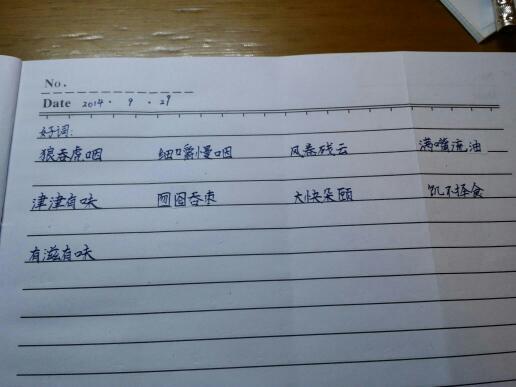 No.
Date 2014.9.29
好词:
狼吞虎咽 细嚼慢咽 风卷残云 满嘴流油
津津有味 囫囵吞枣 大快朵颐 饥不择食
有滋有味